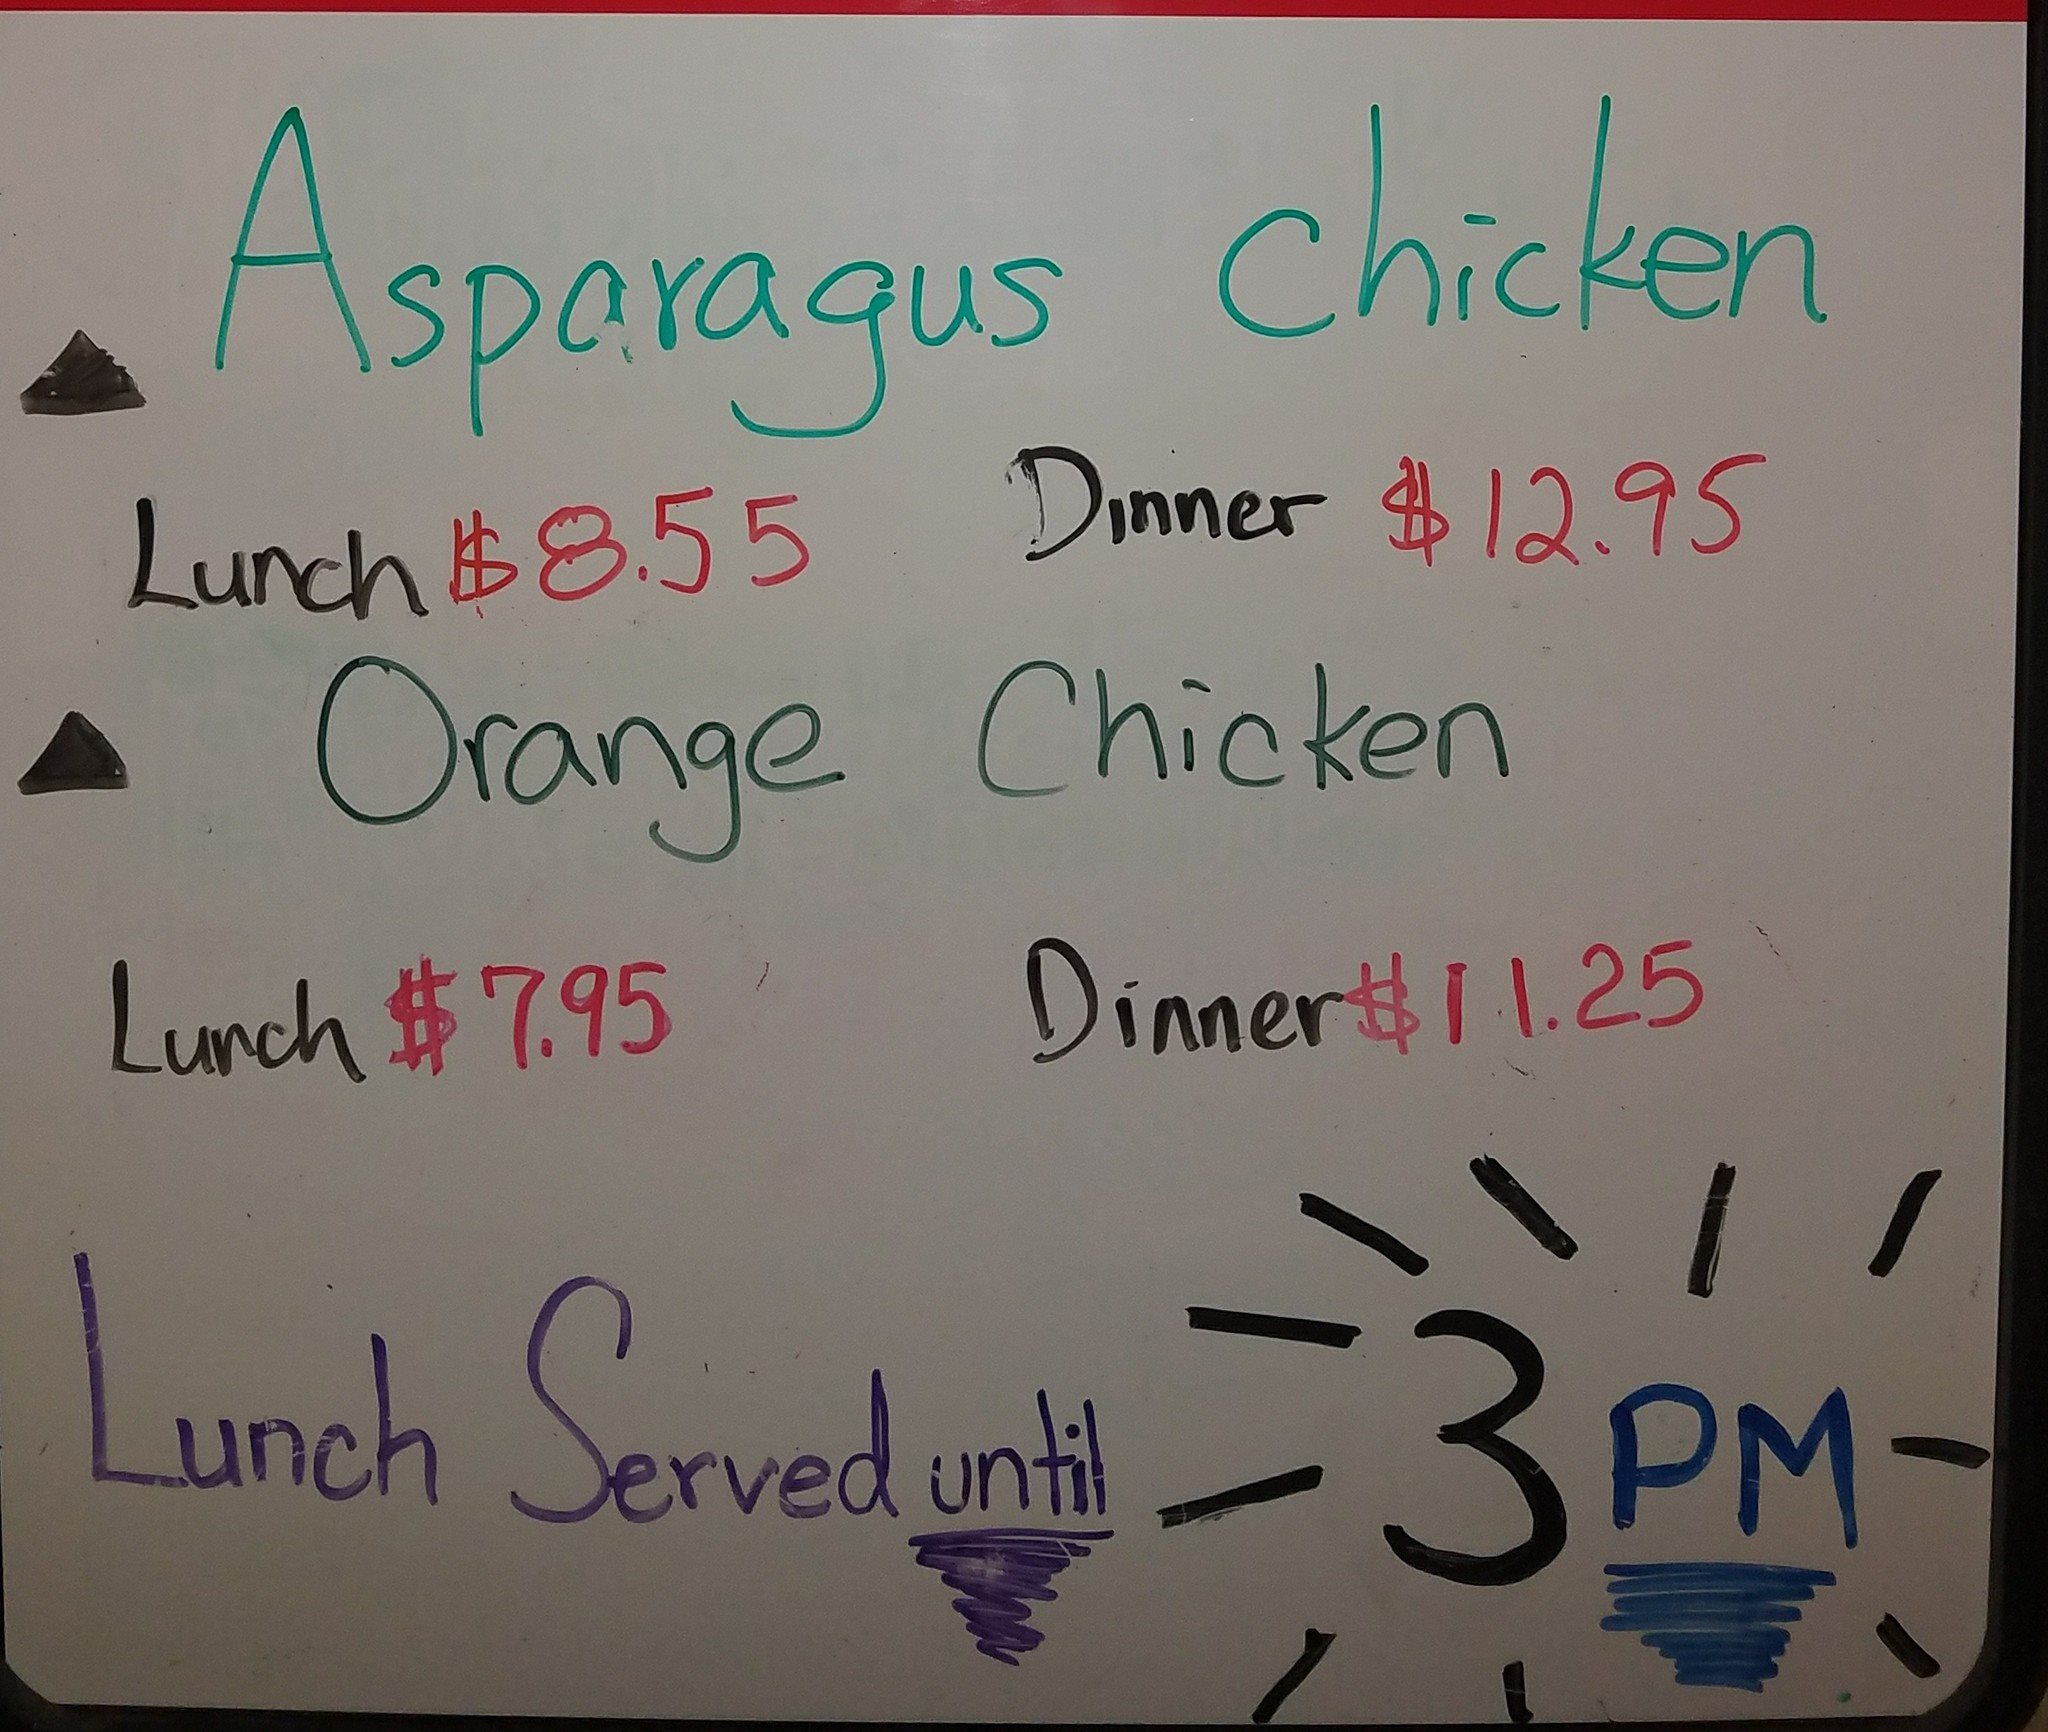 Asparagus Chicken
Lunch $8.55 Dinner $12.95
Orange Chicken
Lunch $7.95 Dinner $11.25
Lunch Served until 3 PM